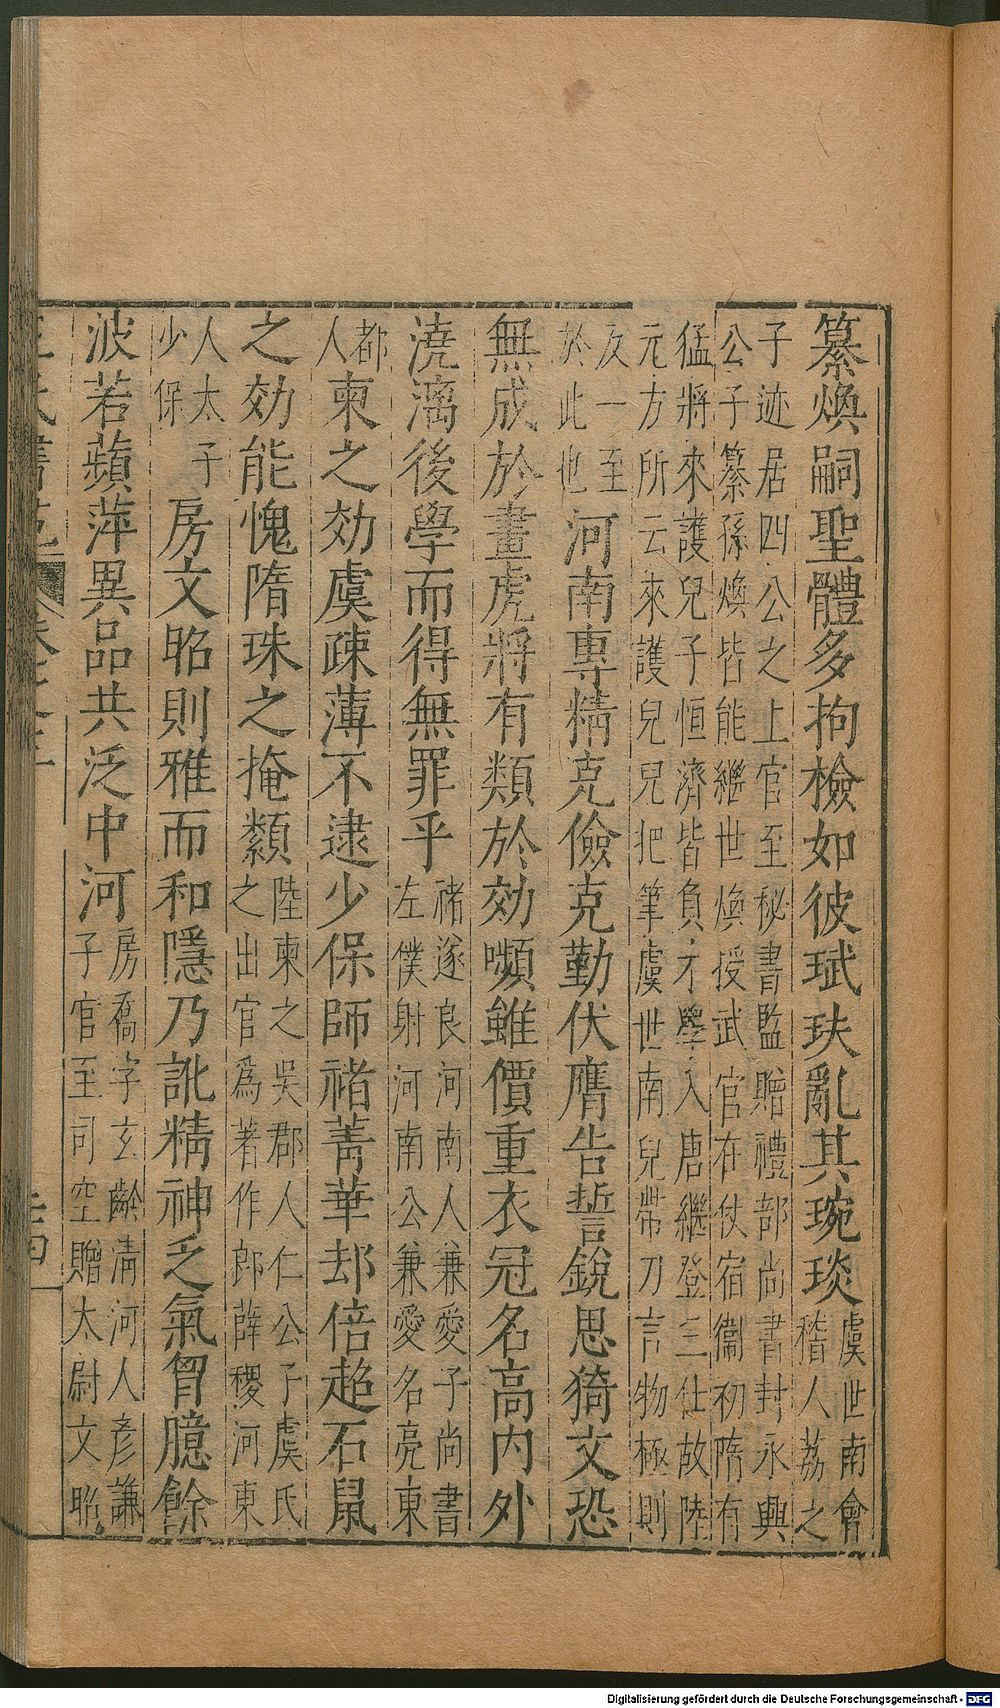 纂煥嗣聖體多拘檢如彼珷玞亂其琬琰虞世南會
稽人荔之
子迹居四公之上官至秘書監贈禮部尚書封永興
公子纂孫煥皆能繼世煥授武官在仗宿衛初隋有
猛將來護兒子恒濟皆負才學入唐繼登三仕故陸
元方所云來護兒兒把筆虞世南兒帶刀言物極則
反一至
於此也
河南專精克儉克勤伏膺告誓銳思猗文恐
無成於畫虎將有類於効嚬雖價重衣冠名高内外
澆漓後學而得無罪乎
褚遂良河南人兼愛子尚書
左僕射河南公兼愛名亮東
都
人
柬之効虞疎薄不逮少保師褚菁華却倍超石鼠
之効能愧隋珠之掩纇
陸柬之吳郡人仁公子虞氏
之出官爲著作郎薛稷河東
人太子
少保
房文昭則雅而和隱乃訛精神乏氣胷臆餘
波若蘋萍異品共泛中河
房喬字玄齡淸河人彥謙
子官至司空贈太尉文昭
王氏書苑
Digitalisierung gefördert durch die Deutsche Forschungsgemeinschaft - DFG